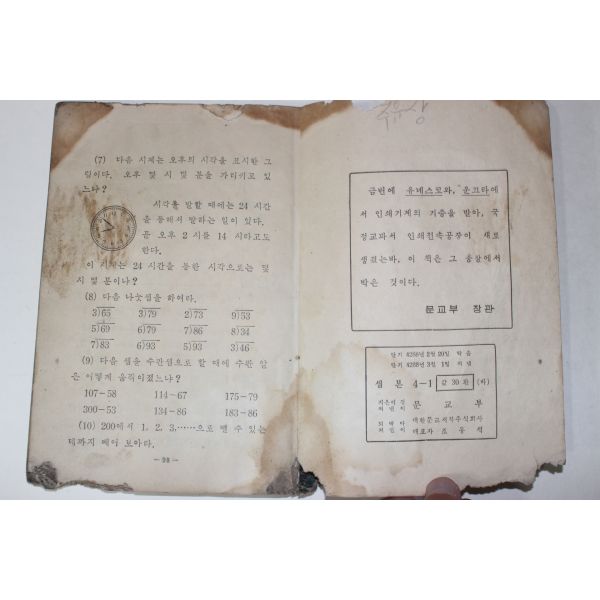 (7) 다음 시계는 오후의 시각을 표시한 그
림이다. 오후 몇 시 몇 분을 가리키고 있
느냐?
시각을 말할 때에는 24 시간
을 통해서 말하는 일이 있다.
곧 오후 2 시를 14 시라고도
한다.
이 시계는 24 시간을 통한 시각으로는 몇
시 몇 분이냐?
(8) 다음 나눗셈을 하여라.
3)65 3)79 2)73 9)53
5)69 6)79 7)86 8)34
7)83 6)93 5)93 3)46
(9) 다음 셈을 수판셈으로 할 때에 수판 알
은 어떻게 움직이겠느냐?
107-58 114-67 175-79
300-53 134-86 183-86
(10) 200에서 1. 2. 3.……으로 뺄 수 있는
데까지 빼어 보아라.
— 98 —
금번에 유네스코와, 운크라에
서 인쇄기계의 기증을 받아, 국
정교과서 인쇄전속공장이 새로
생겼는바, 이 책은 그 공장에서
박은 것이다.
문교부 장관
단기 4288년 3월 1일 펴냄
셈 본 4-1 값 30 환
문 교 부
대한문교서적주식회사
대표자